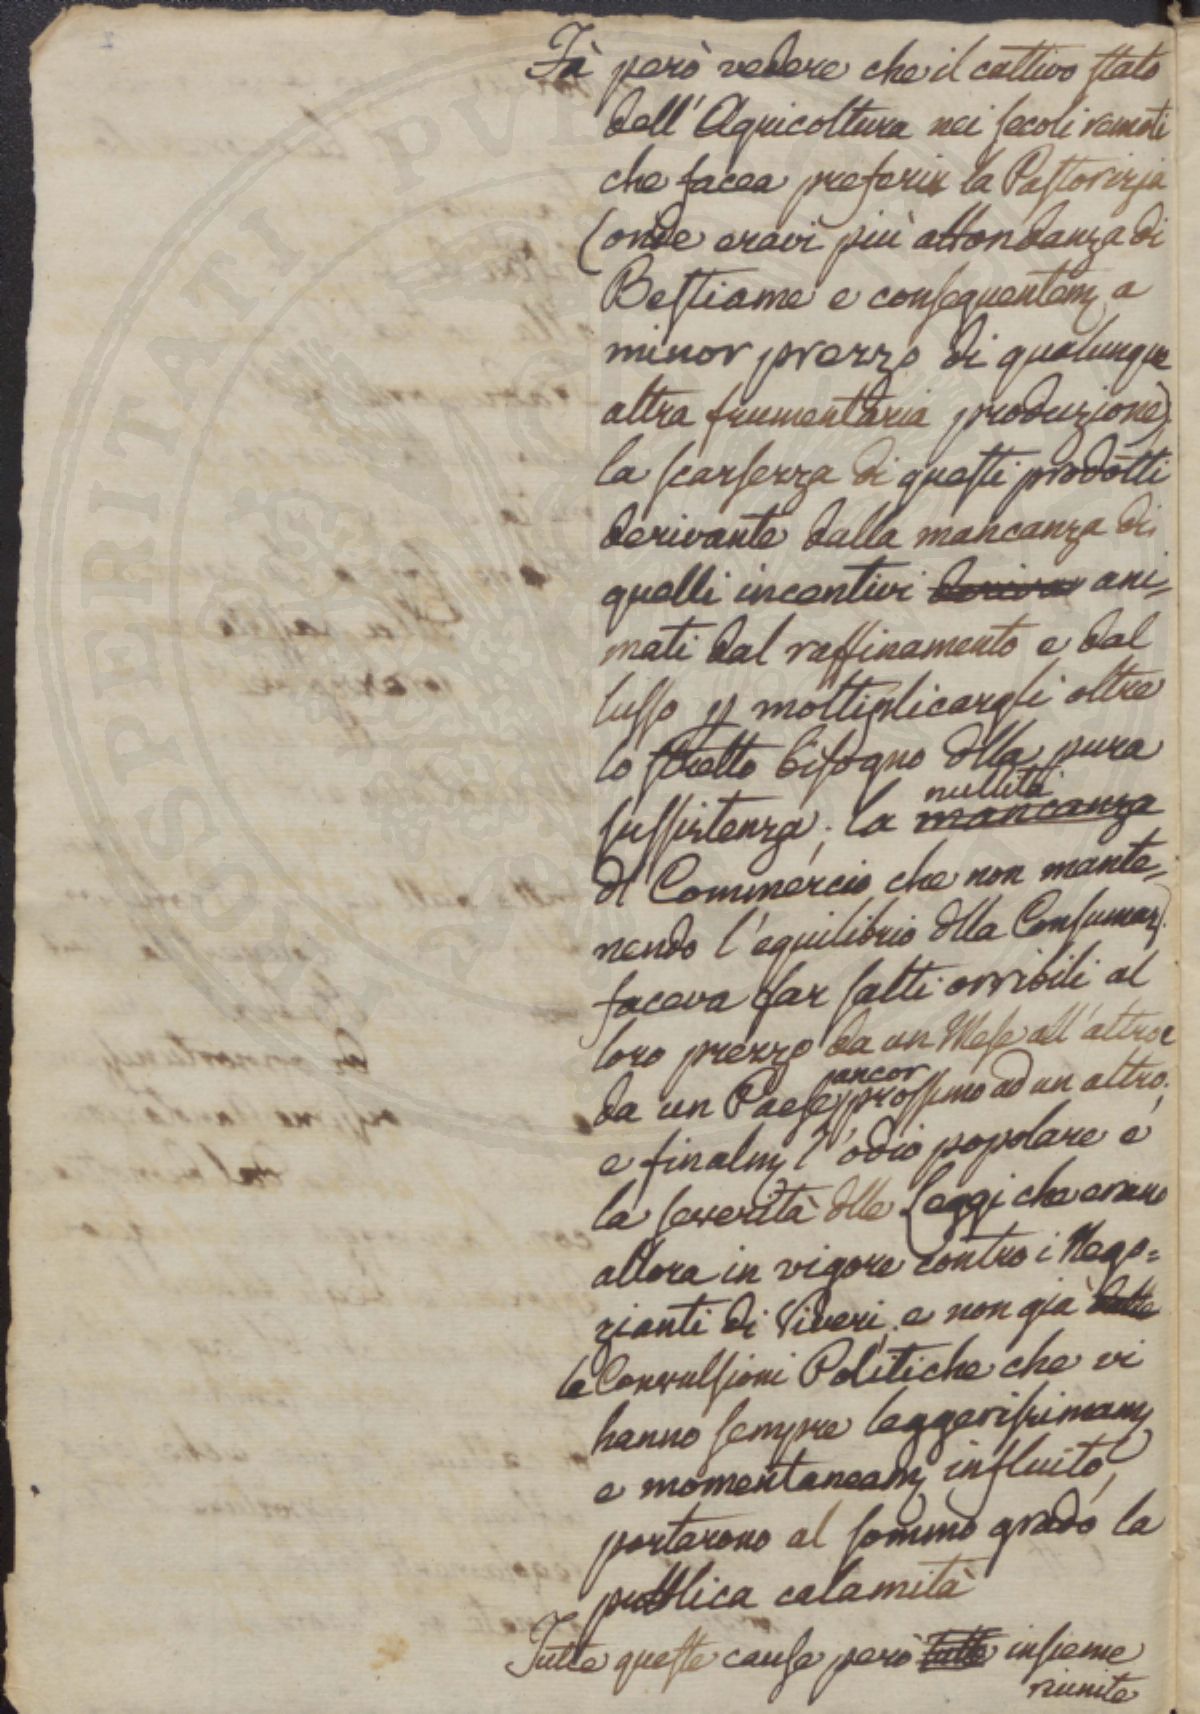 Fà però vedere che il cattivo stato
dell'Agricoltura nei secoli remoti
che facea preferir la Pastorizia
(onde eravi più abbondanza di
Bestiame e conseguentem. a
minor prezzo di qualunque
altra frumentaria produzione)
la scarsezza di questi prodotti
derivante dalla mancanza di
quelli incentivi deriva ani=
mati dal raffinamento e dal
lusso p moltiplicargli oltre
lo stretto bisogno dlla pura
nullità
sussistenza; la mancanza
dl Commercio che non mante=
nendo l'equilibrio dlla Consumaz.
faceva far salti orribili al
loro prezzo da un Mese all'altro e
ancor
da un Paese prossimo ad un altro;
e finalm. l'odio popolare e
la severità dlle Leggi che erano
allora in vigore contro i Nego=
zianti di Viveri, e non già dalle
le Convulsioni Politiche che vi
hanno sempre leggerissimam.
e momentaneam. influito,
portarono al sommo grado la
pubblica calamità
Tutte queste cause però tutte insieme
riunite
PROSPERITATI